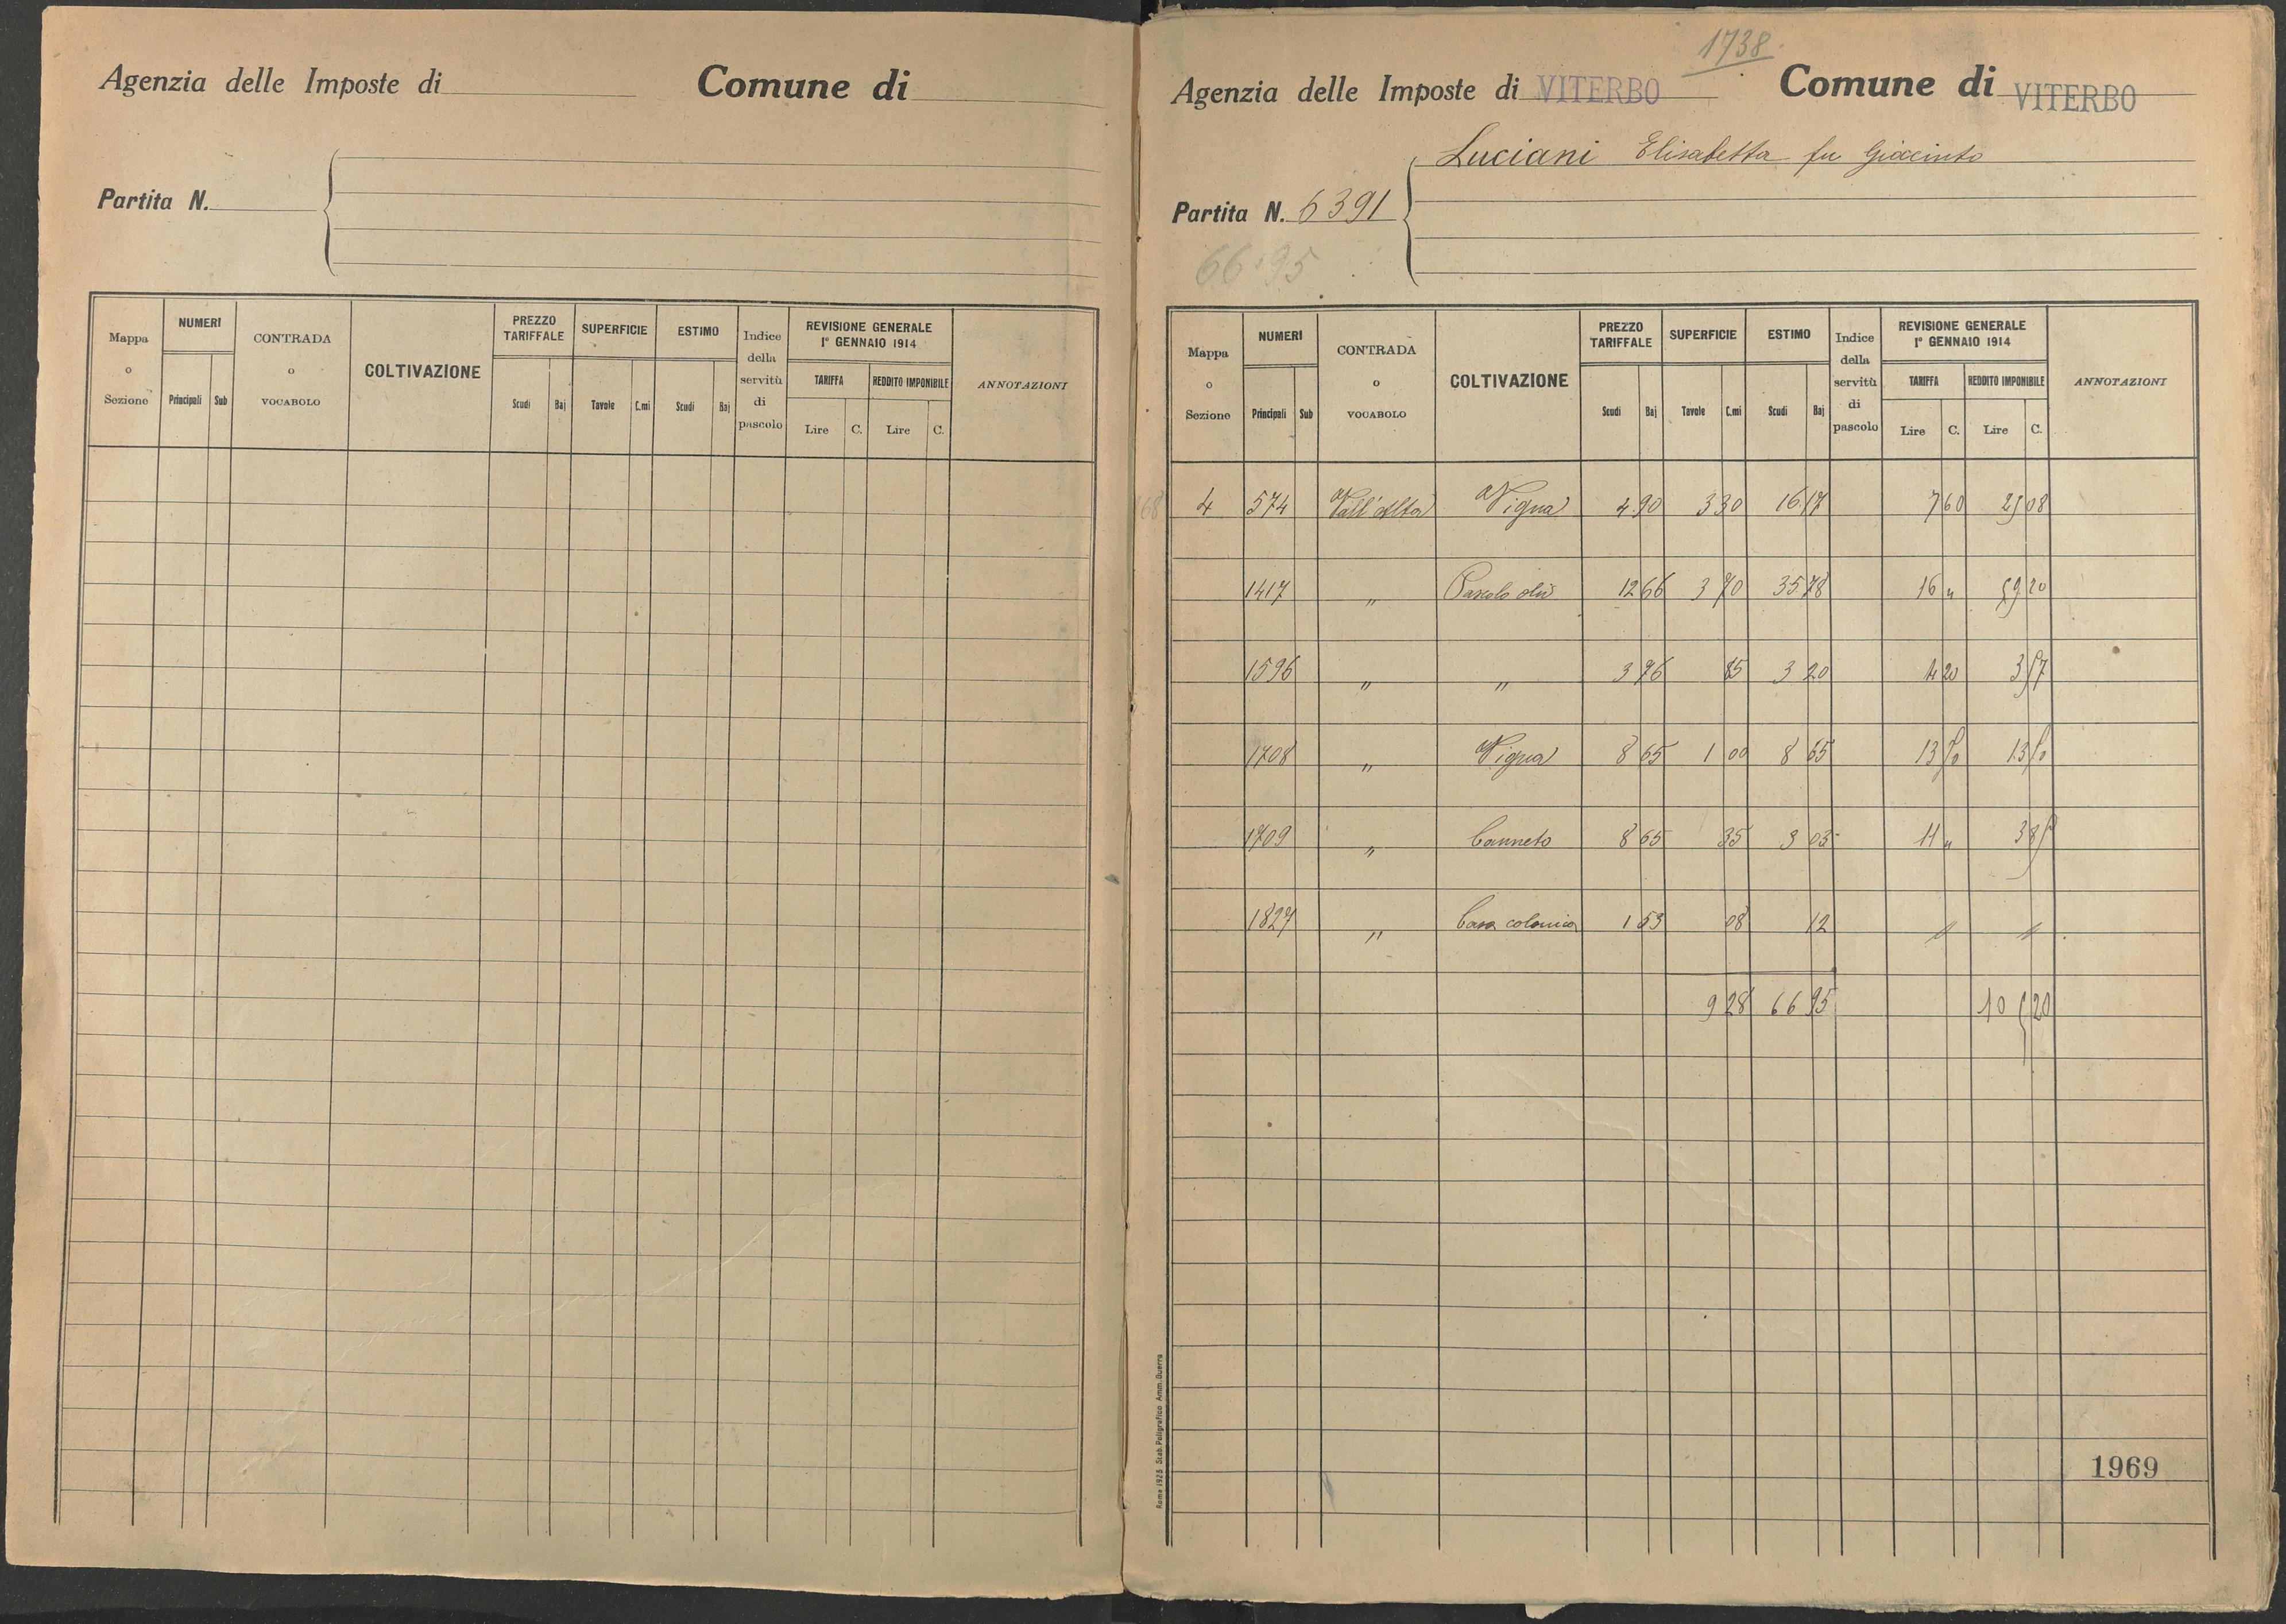 Agenzia delle Imposte di
Comune di
Partita N.
Mappa o Sezione
NUMERI
Principali Sub
CONTRADA o VOCABOLO
COLTIVAZIONE
PREZZO TARIFFALE
Scudi Baj
SUPERFICIE
Tavole C.mi
ESTIMO
Scudi Baj
Indice della servitù di pascolo
REVISIONE GENERALE
1° GENNAIO 1914
TARIFFA REDDITO IMPONIBILE
Lire C. Lire C.
ANNOTAZIONI
1738
Agenzia delle Imposte di VITERBO Comune di VITERBO
Luciani Elisabetta fu Giacinto
Partita N. 6391
66.95
Mappa o Sezione
NUMERI
Principali Sub
CONTRADA o VOCABOLO
COLTIVAZIONE
PREZZO TARIFFALE
Scudi Baj
SUPERFICIE
Tavole C.mi
ESTIMO
Scudi Baj
Indice della servitù di pascolo
REVISIONE GENERALE
1° GENNAIO 1914
TARIFFA REDDITO IMPONIBILE
Lire C. Lire C.
ANNOTAZIONI
4 574 Vall'Alta Vigna 4 90 3 30 16 17 7 60 25 08
1417 " Pascolo oliv 12 66 3 70 35 78 16 " 59 20
1596 " " 3 76 85 3 20 4 20 3 57
1708 " Vigna 8 65 1 00 8 65 13 50 13 50
1709 " Canneto 8 65 35 3 03 11 " 3 85
1827 " Casa colonica 1 53 08 12 " "
9 28 66 95 10 5 20
1969
Roma 1925 Stab. Poligrafico Amm. Guerra